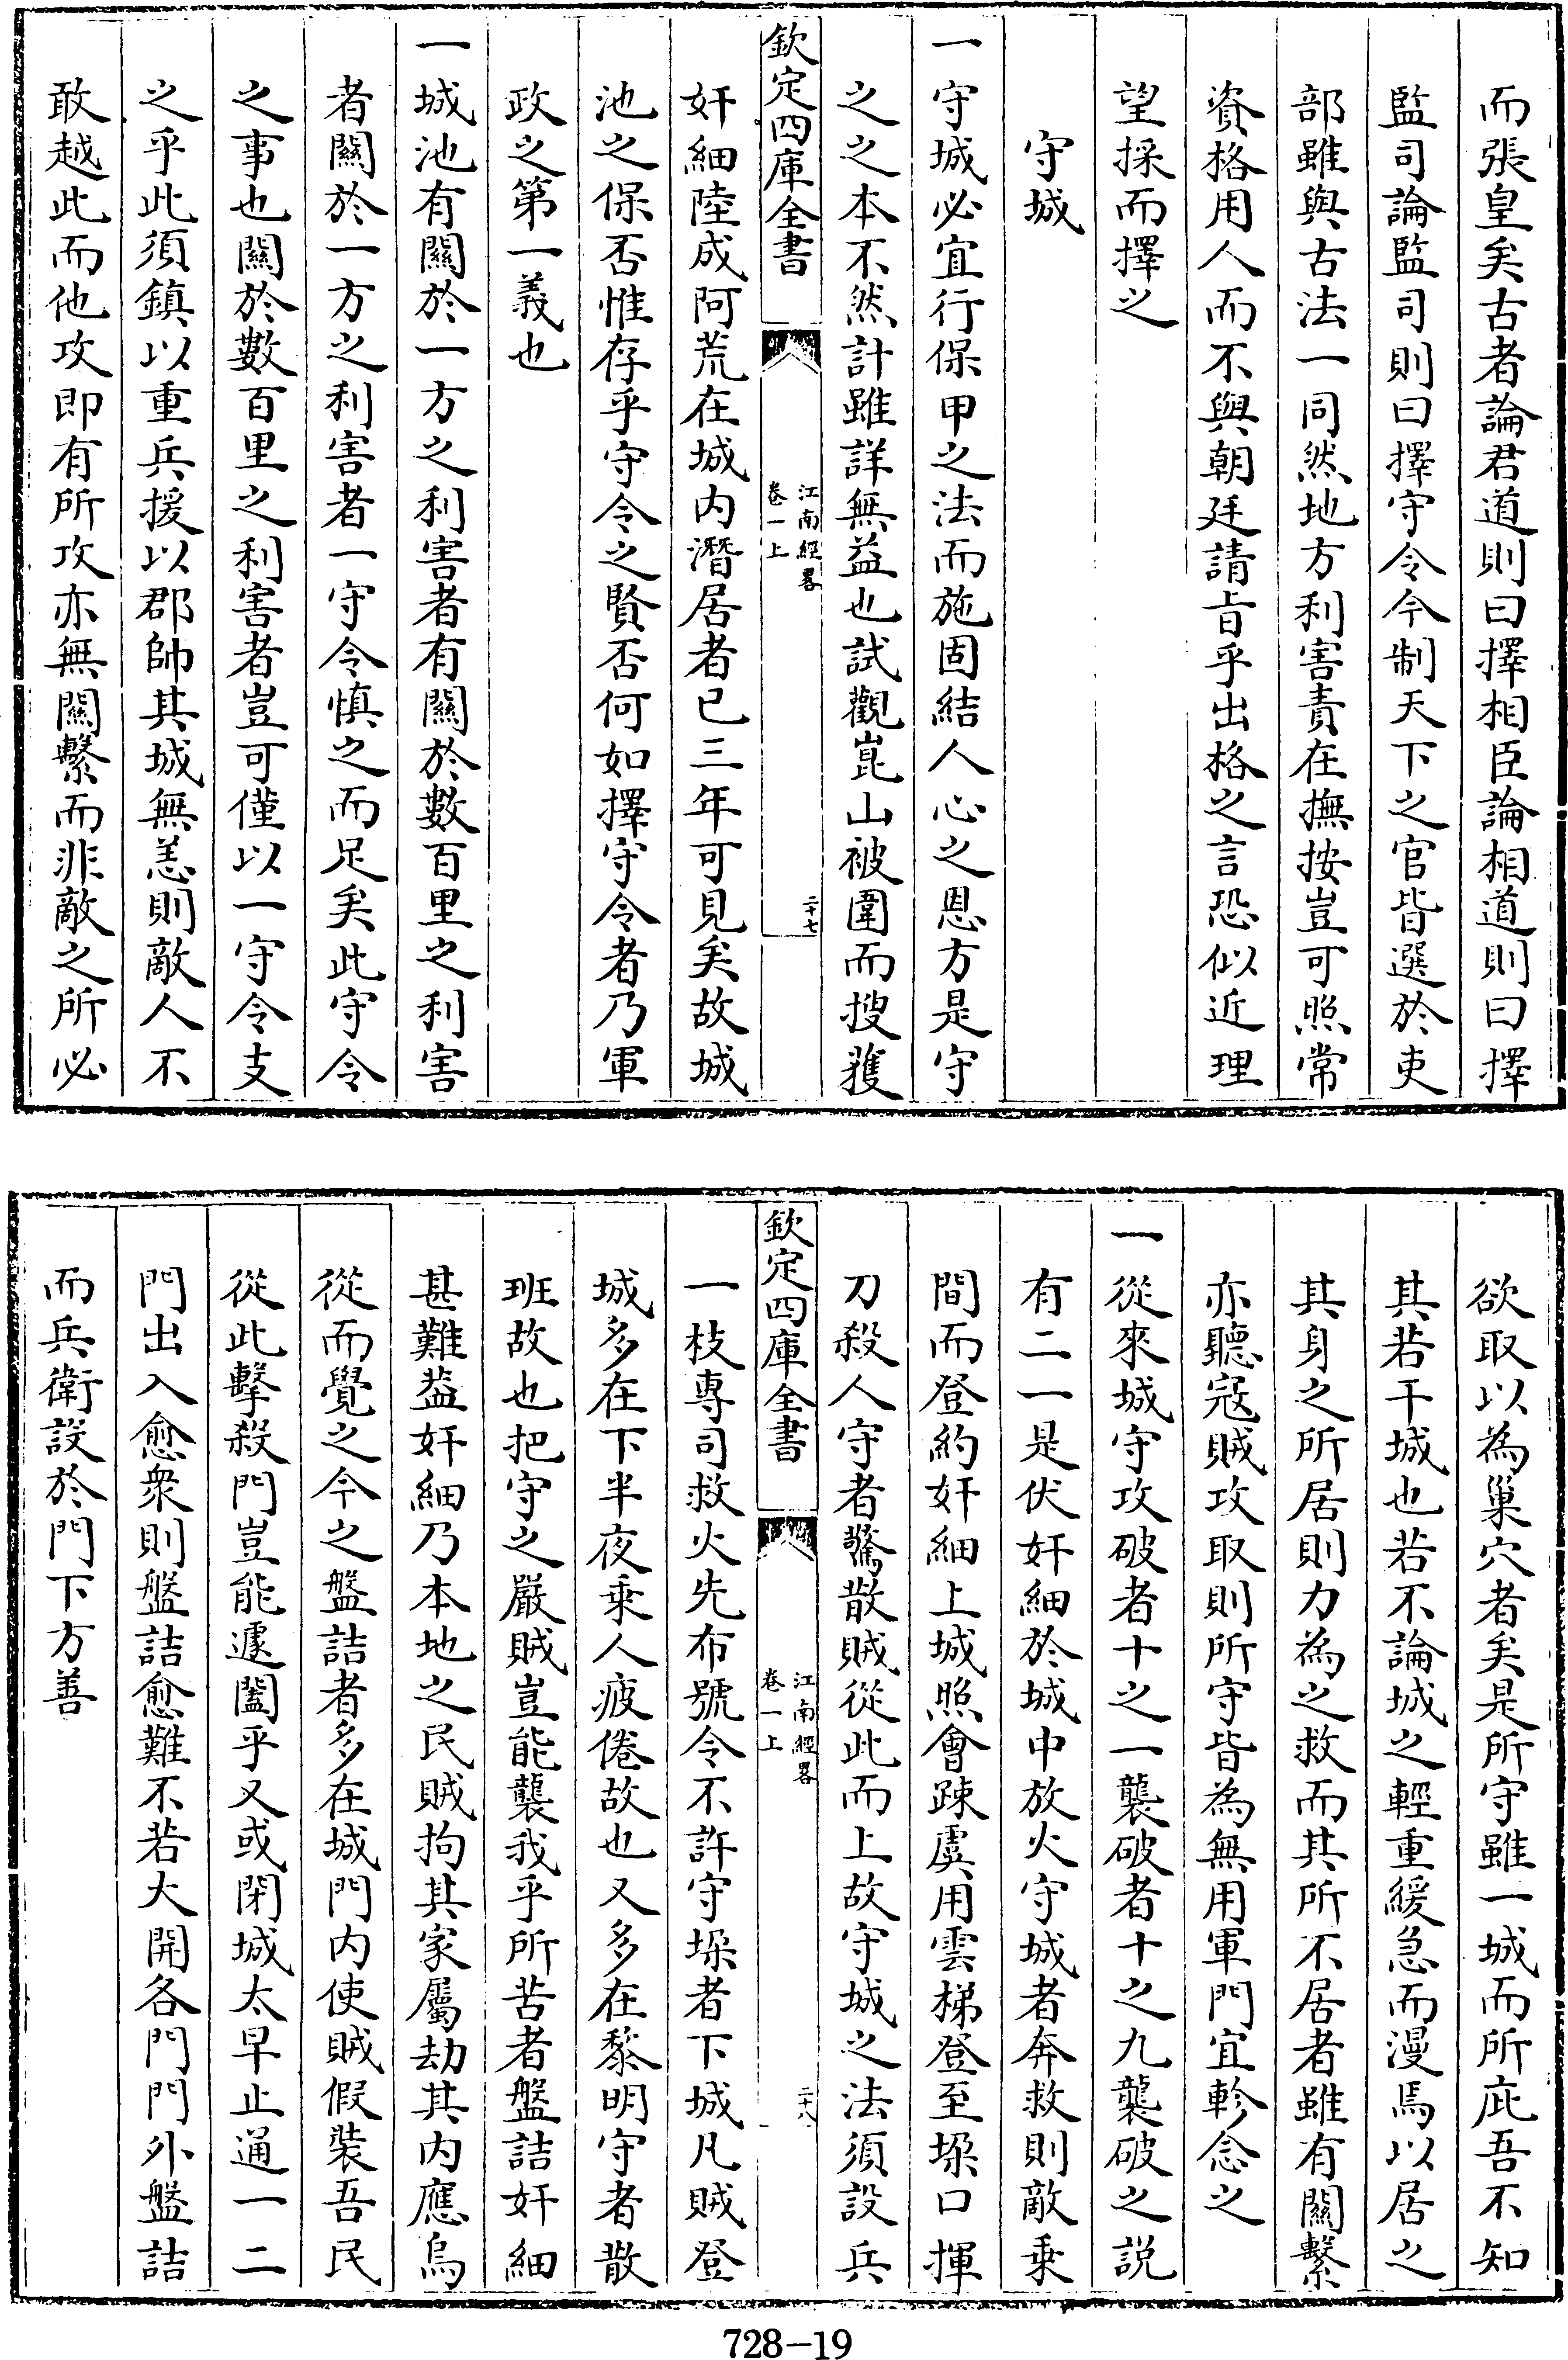 而張皇矣古者論君道則曰擇相臣論相道則曰擇
監司論監司則曰擇守令今制天下之官皆選於吏
部雖與古法一同然地方利害責在撫按豈可照常
資格用人而不與朝廷請旨乎出格之言恐似近理
望採而擇之
守城
一守城必宜行保甲之法而施固結人心之恩方是守
之之本不然計雖詳無益也試觀崑山被圍而搜獲
欽定四庫全書
江南經畧
卷一上
二十七
奸細陸成阿荒在城内潛居者已三年可見矣故城
池之保否惟存乎守令之賢否何如擇守令者乃軍
政之第一義也
一城池有關於一方之利害者有關於數百里之利害
者關於一方之利害者一守令慎之而足矣此守令
之事也關於數百里之利害者豈可僅以一守令支
之乎此須鎮以重兵援以郡帥其城無恙則敵人不
敢越此而他攻即有所攻亦無關繫而非敵之所必
欲取以為巢穴者矣是所守雖一城而所庇吾不知
其若干城也若不論城之輕重緩急而漫焉以居之
其身之所居則力為之救而其所不居者雖有關繫
亦聽冦賊攻取則所守皆為無用軍門宜軫念之
一從來城守攻破者十之一襲破者十之九襲破之説
有二一是伏奸細於城中放火守城者奔救則敵乘
間而登約奸細上城照會踈虞用雲梯登至垜口揮
刀殺人守者驚散賊從此而上故守城之法須設兵
欽定四庫全書
江南經畧
卷一上
二十八
一枝專司救火先布號令不許守垜者下城凡賊登
城多在下半夜乘人疲倦故也又多在黎明守者散
班故也把守之嚴賊豈能襲我乎所苦者盤詰奸細
甚難葢奸細乃本地之民賊拘其家屬劫其内應烏
從而覺之今之盤詰者多在城門内使賊假裝吾民
從此擊殺門豈能遽闔乎又或閉城太早止通一二
門出入愈衆則盤詰愈難不若大開各門門外盤詰
而兵衛設於門下方善
728-19